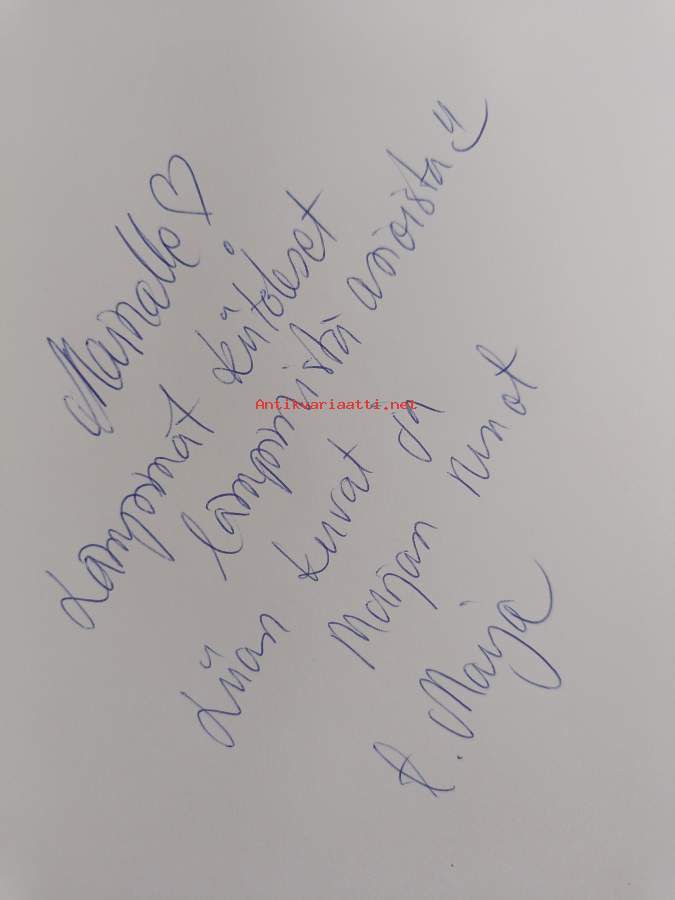 Marnalle ♡
Lämpimät kiitokset
lämpimistä arvoista
Liian kuvat ja
Marjan runot
t. Marja
Antikvariaatti.net